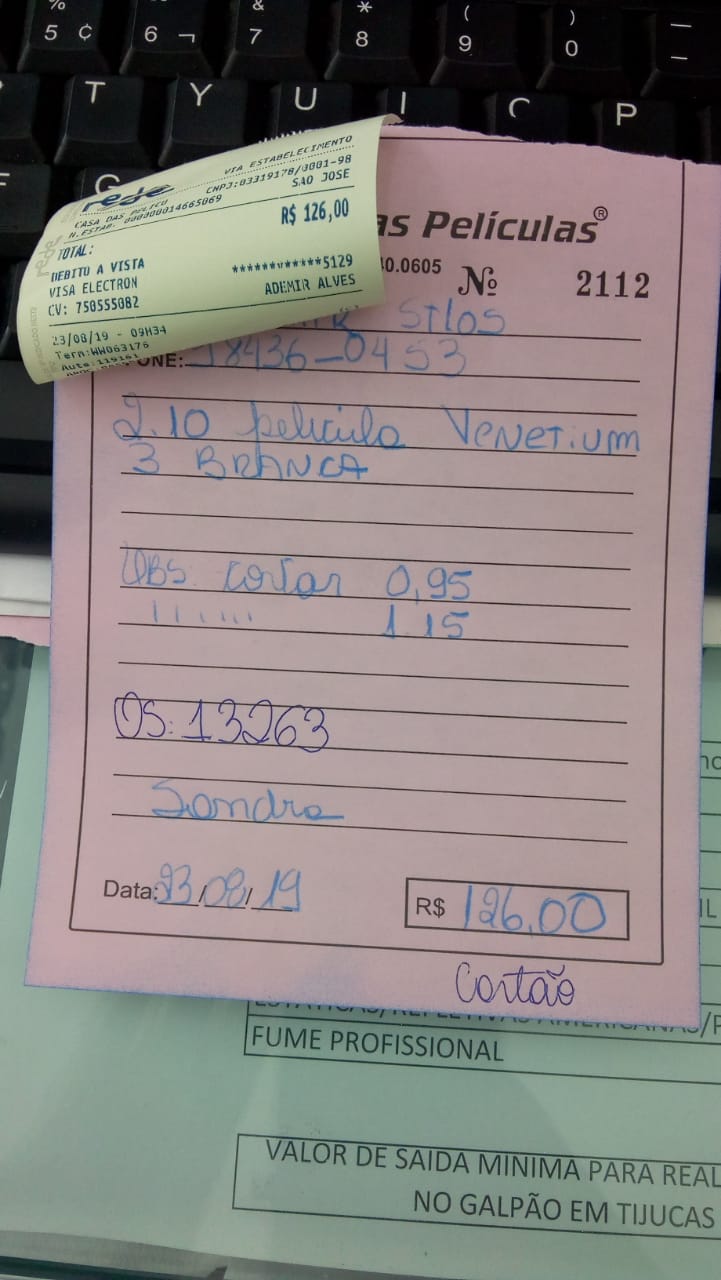 % & * ( ) —
5 ¢ 6 ¬ 7 8 9 0 –
T Y U I O P
rede
VIA ESTABELECIMENTO
CNPJ:03319178/0001-98
CASA DAS PELICU SAO JOSE
N.ESTAB. 000000014665069
R$ 126,00
TOTAL:
DEBITO A VISTA
VISA ELECTRON ************5129
CV: 750555082 ADEMIR ALVES
23/08/19 - 09H34
Term:WW063176
Auto:119161
as Películas®
40.0605 Nº 2112
Stlos
ONE: 8436-0453
2.10 película Venetium
3 BRANCA
OBS. cortar 0,95
'' ''' ''' 1.15
OS: 13263
Sandra
Data: 23/08/19 R$ 126,00
Cartão
FUME PROFISSIONAL
VALOR DE SAIDA MINIMA PARA REAL
NO GALPÃO EM TIJUCAS